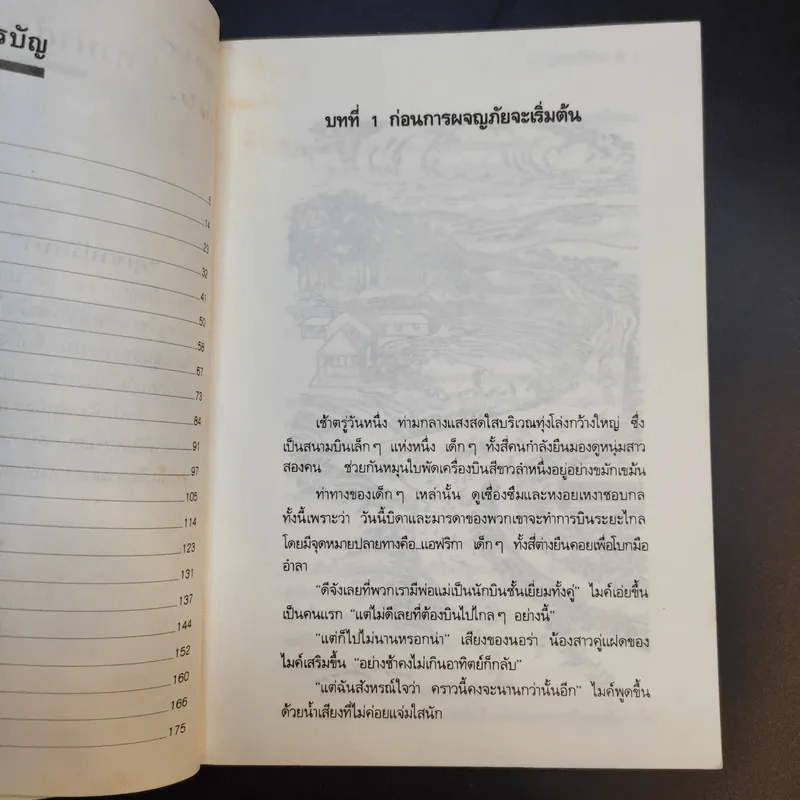 รบัญ
5
14
23
32
41
50
58
67
73
84
91
97
105
114
123
131
137
144
152
160
166
175
บทที่ 1 ก่อนการผจญภัยจะเริ่มต้น
เช้าตรู่วันหนึ่ง ท่ามกลางแสงสดใสบริเวณทุ่งโล่งกว้างใหญ่ ซึ่ง
เป็นสนามบินเล็กๆ แห่งหนึ่ง เด็กๆ ทั้งสี่คนกำลังยืนมองดูหนุ่มสาว
สองคน ช่วยกันหมุนใบพัดเครื่องบินสีขาวลำหนึ่งอยู่อย่างขมักเขม้น
ท่าทางของเด็กๆ เหล่านั้น ดูเซื่องซึมและหงอยเหงาชอบกล
ทั้งนี้เพราะว่า วันนี้บิดาและมารดาของพวกเขาจะทำการบินระยะไกล
โดยมีจุดหมายปลายทางคือ...แอฟริกา เด็กๆ ทั้งสี่ต่างยืนคอยเพื่อโบกมือ
อำลา
"ดีจังเลยที่พวกเรามีพ่อแม่เป็นนักบินชั้นเยี่ยมทั้งคู่" ไมค์เอ่ยขึ้น
เป็นคนแรก "แต่ไม่ดีเลยที่ต้องบินไปไกลๆ อย่างนี้"
"แต่ก็ไปไม่นานหรอกน่า" เสียงของนอร่า น้องสาวคู่แฝดของ
ไมค์เสริมขึ้น "อย่างช้าคงไม่เกินอาทิตย์ก็กลับ"
"แต่ฉันสังหรณ์ใจว่า คราวนี้คงจะนานกว่านั้นอีก" ไมค์พูดขึ้น
ด้วยน้ำเสียงที่ไม่ค่อยแจ่มใสนัก